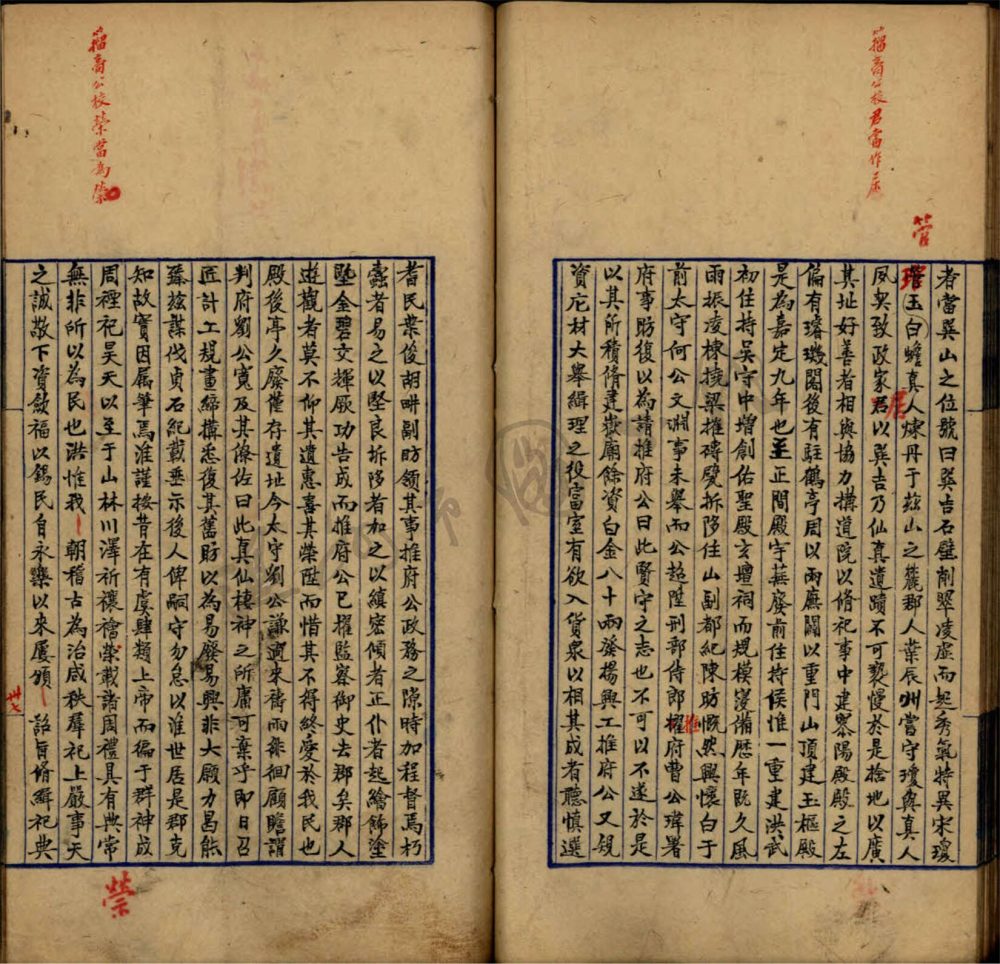 籀高公校君當作居
管
者當巽山之位號曰巽吉石壁削翠凌虛而起秀氣特異宋瓊
琯玉白蟾真人煉丹于玆山之麓郡人葉辰州嘗守瓊與真人
夙契致政家居以巽吉乃仙真遺蹟不可褻慢於是捨地以廣
其址好善者相與協力搆道院以脩祀事中建寥陽殿殿之左
偏有璿璣閣後有駐鶴亭周以兩廡闢以重門山頂建玉樞殿
是為嘉定九年也至正間殿宇蕪廢前住持侯惟一重建洪武
初住持吴守中增創佑聖殿玄壇祠而規模寖備歷年既久風
雨振凌棟撓梁摧磚甓拆陊住山副都紀陳昉慨然興懷白于
前太守何公文淵事未舉而公超陞刑部侍郎推府曹公瑋署
府事昉復以為請推府公曰此賢守之志也不可以不遂於是
以其所積脩建嶽廟餘資白金八十兩發揚興工推府公又規
資庀材大舉緝理之役富室有欲入貨泉以相其成者聽慎選
籀高公校榮當為禜
耆民葉俊胡畊副昉領其事推府公政務之隙時加程督焉朽
蠹者易之以堅良拆陊者加之以縝宻傾者正仆者起繪飾塗
塈金碧交輝厥功告成而推府公已擢監察御史去郡矣郡人
遊觀者莫不仰其遺惠喜其榮陞而惜其不得終愛於我民也
殿後亭久廢僅存遺址今太守劉公謙適來禱雨徘徊顧瞻謂
判府劉公寬及其僚佐曰此真仙棲神之所庸可棄乎即日召
匠計工規畫締搆悉復其舊昉以為易廢易興非大願力曷能
臻玆謀伐貞石紀載垂示後人俾嗣守勿怠以淮世居是郡克
知故實因属筆焉淮謹按昔在有虞肆類上帝而徧于群神成
周禋祀昊天以至于山林川澤祈禳禬榮載諸周禮具有典常
無非所以為民也洪惟我朝稽古為治咸秩羣祀上嚴事天
之誠敬下資斂福以錫民自永樂以來屢頒詔旨脩緝祀典
卅七
禜